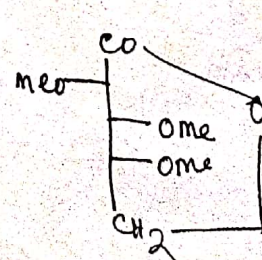 CO
MeO
O
OMe
OMe
CH2